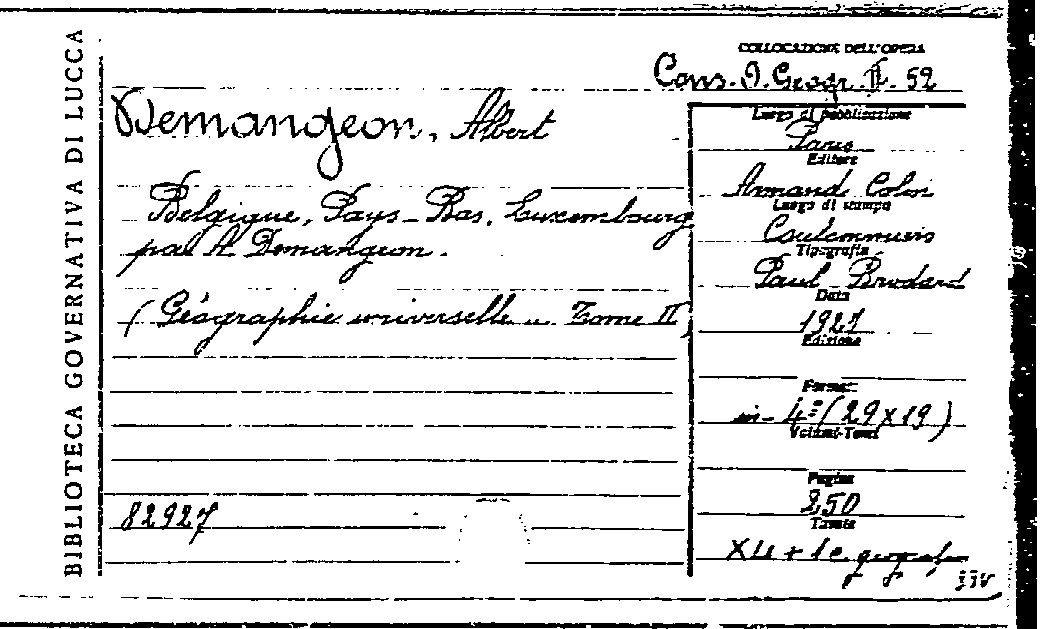 BIBLIOTECA GOVERNATIVA DI LUCCA
COLLOCAZIONE DELL'OPERA
Cons. I. Geogr. II. 52
Demangeon, Albert
Belgique, Pays-Bas, Luxembourg
par A. Demangeon.
(Géographie universelle .. Tome II)
82927
Luogo di pubblicazione
Paris
Editore
Armand Colin
Luogo di stampa
Coulommiers
Tipografia
Paul Brodard
Data
1927
Edizione
Formato
in-4° (29x19)
Volumi-Tomi
Pagine
250
Tavole
+ 1 c.